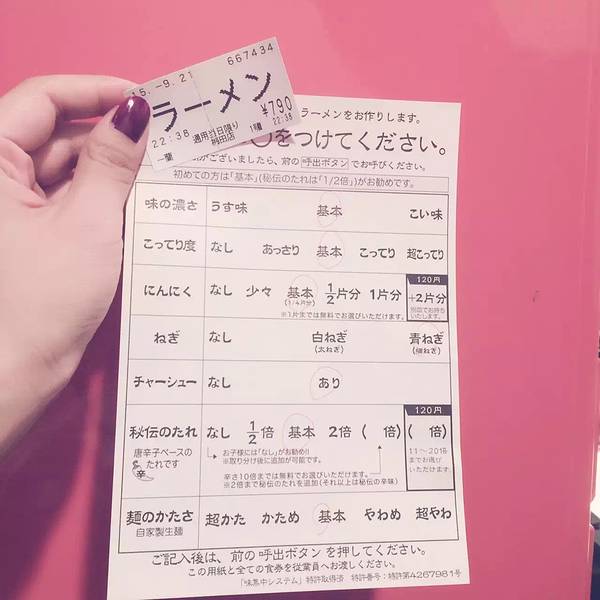 15.-9.21 667434
ラーメン
¥790
22:38 適用当日限り 22:38
一蘭
ラーメンをお作りします。
○をつけてください。
がございましたら、前の 呼出ボタン でお呼びください。
初めての方は「基本」(秘伝のたれは「1/2倍」)がお勧めです。
味の濃さ うす味 基本 こい味
こってり度 なし あっさり 基本 こってり 超こってり
120円
にんにく なし 少々 基本 1/2片分 1片分 +2片分
(1/4片分)
※1片までは無料でお選びいただけます。
別皿でお持ちいたします。
ねぎ なし 白ねぎ 青ねぎ
(太ねぎ) (細ねぎ)
チャーシュー なし あり
120円
秘伝のたれ なし 1/2倍 基本 2倍 ( 倍) ( 倍)
唐辛子ベースの
たれです
辛
お子様には「なし」がお勧め!!
※取り分け後に追加が可能です。
辛さ10倍までは無料でお選びいただけます。
※2倍まで秘伝のたれを追加(それ以上は秘伝の辛味)
11〜20倍
までお選び
いただけます。
麺のかたさ 超かた かため 基本 やわめ 超やわ
自家製生麺
ご記入後は、前の 呼出ボタン を押してください。
この用紙と全ての食券を従業員へお渡しください。
「味集中システム」特許取得済 特許番号:特許第4267981号